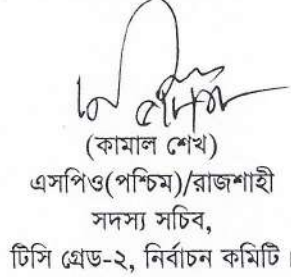 (কামাল শেখ)
এসপিও(পশ্চিম)/রাজশাহী
সদস্য সচিব,
টিসি গ্রেড-২, নির্বাচন কমিটি।